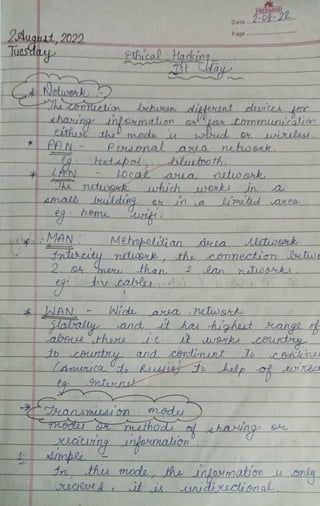 Date 2-08-22
Page
2 August, 2022
Tuesday
Ethical Hacking
Ist day
* Network :-
The connection between different devices for
sharing information or for communication
either the mode is wired or wireless.
* PAN - Personal area network.
eg hotspot, bluetooth.
* LAN - local area network
The network which works in a
small building or in a limited area
eg: home wifi.
* MAN : Metropolitian Area Network
Intercity network, the connection betwe
2 or more than 2 lan networks.
eg: tv cables
* WAN - Wide area network
Globally and it has highest range of
above there i.e. it works country
to country and continent to contine
(America to Russia) to help of wirea
eg Internet
* Transmission modes
modes or methods of sharing or
reciving information
1. Simple -
In this mode, the information is only
recieved, it is unidirectional.